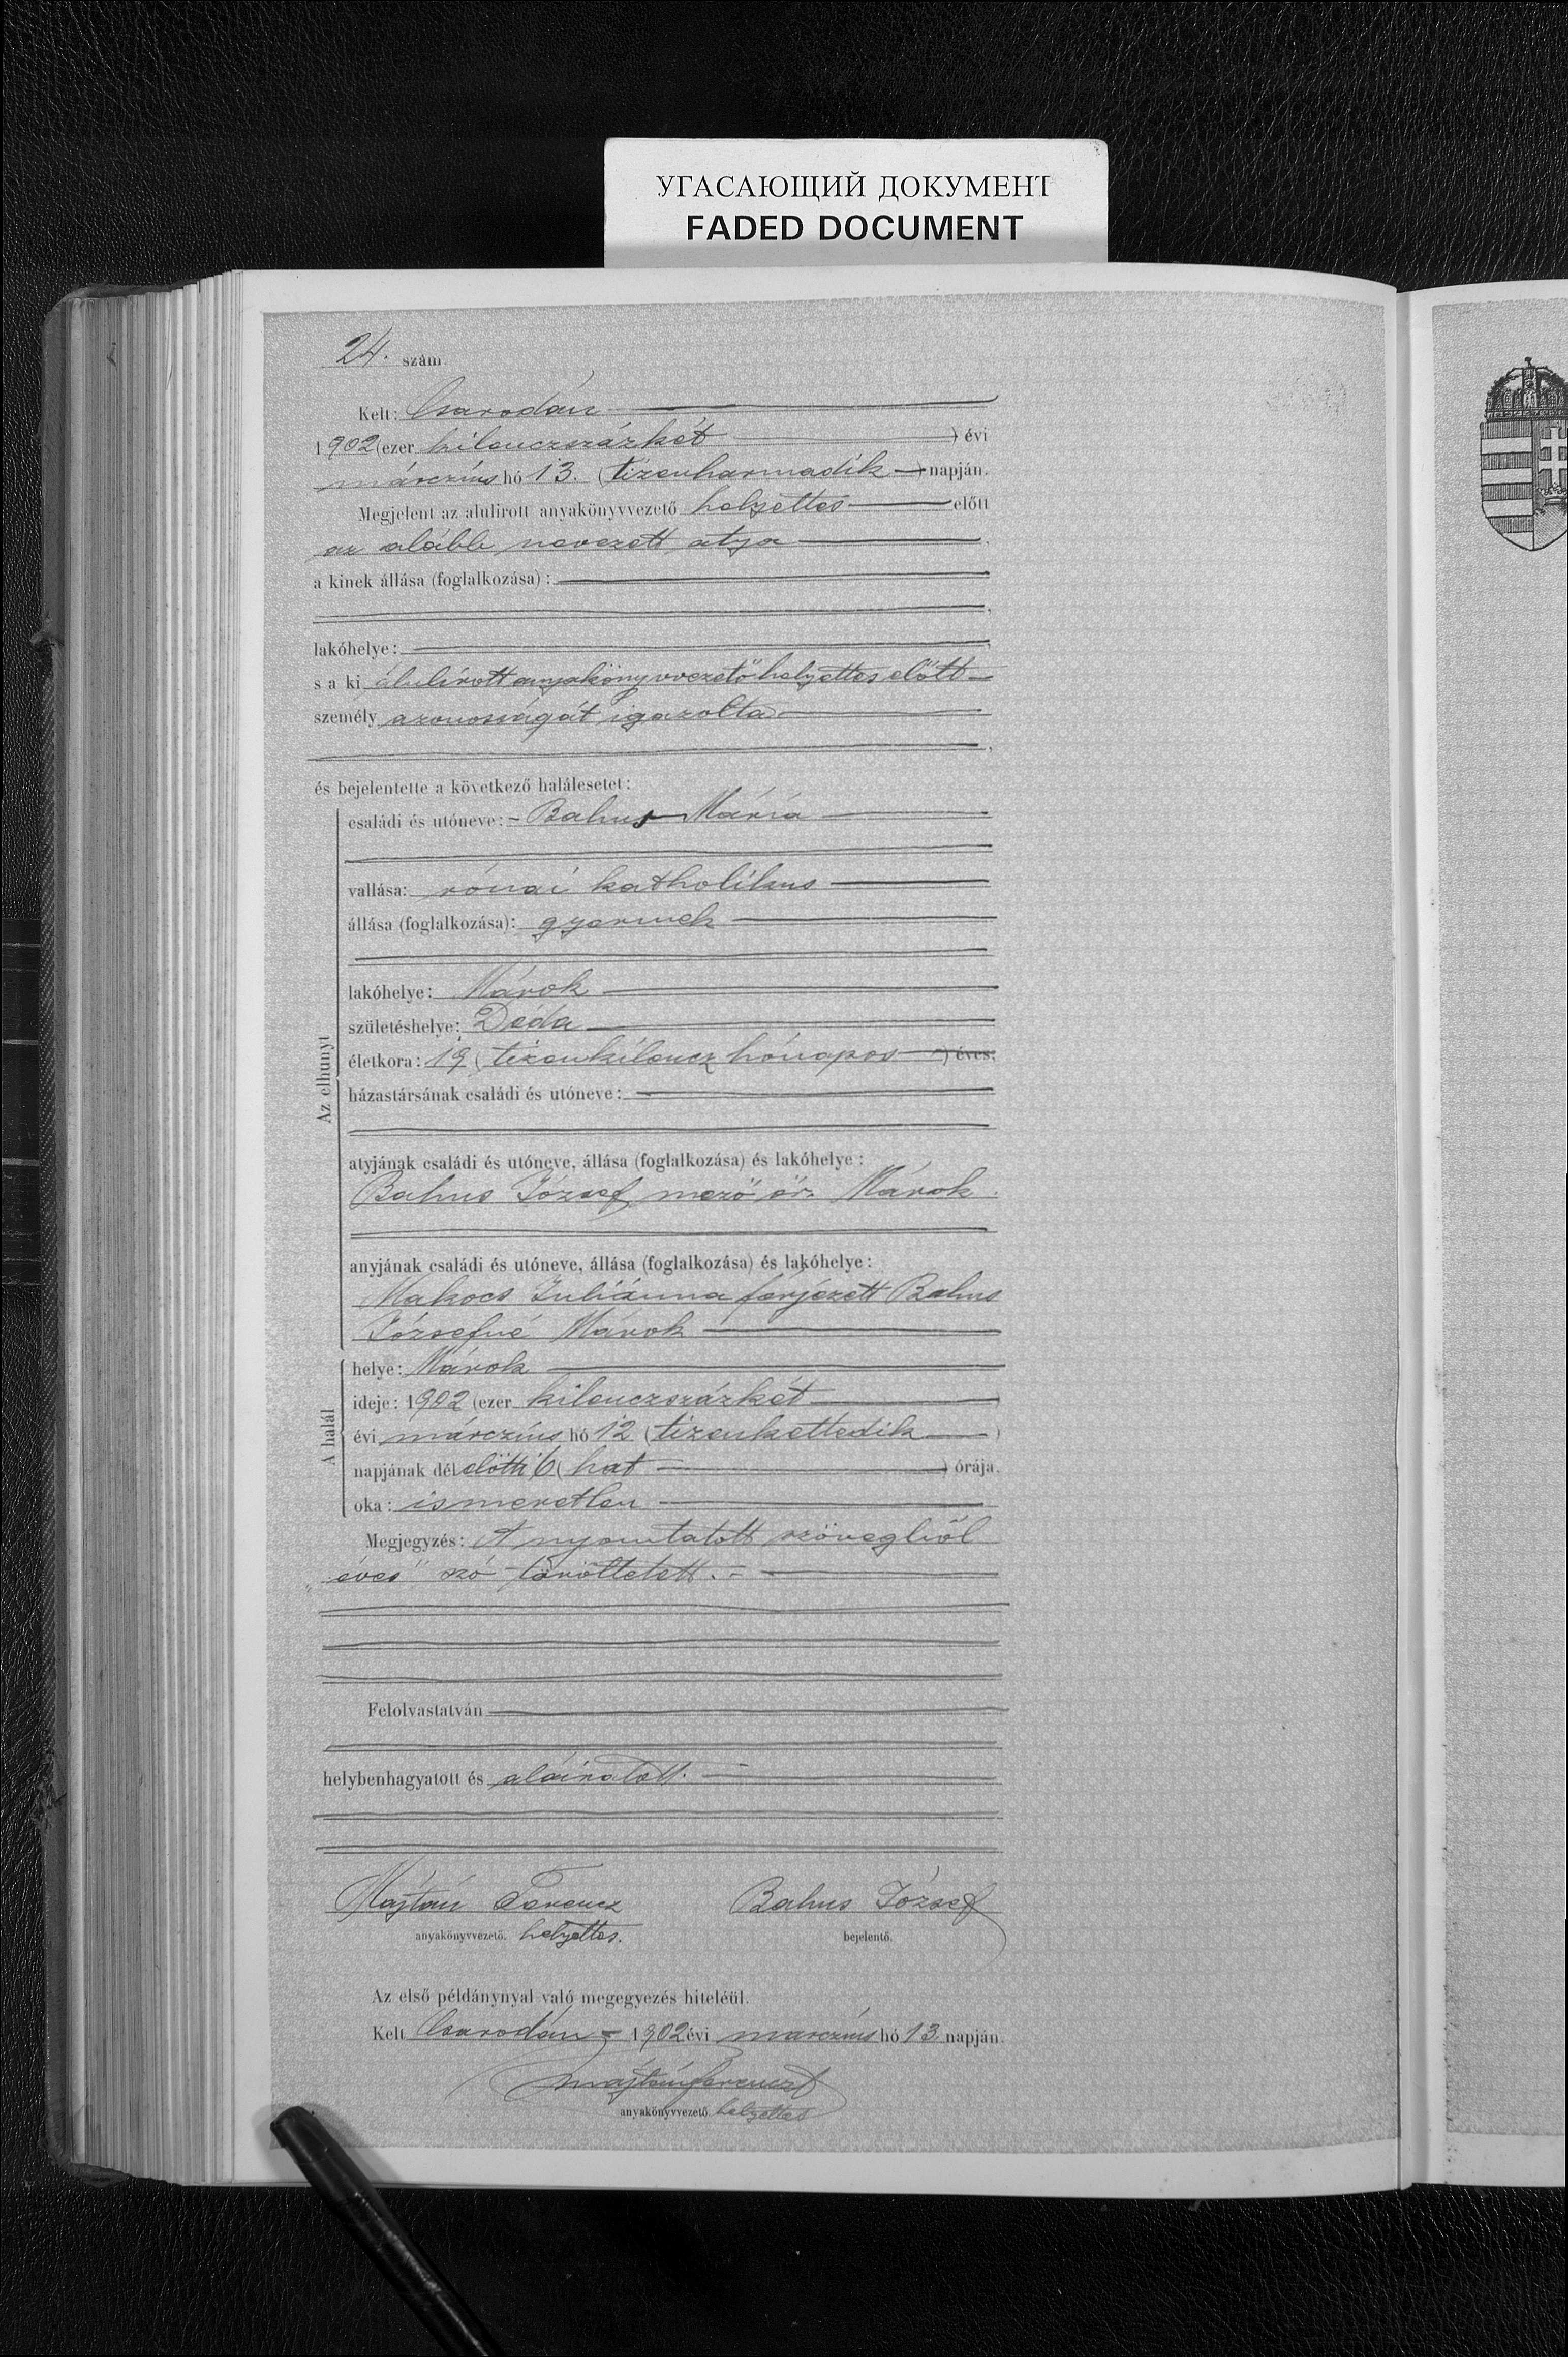 УГАСАЮЩИЙ ДОКУМЕНТ
FADED DOCUMENT
24. szám.
Kelt: Csarodán
1902 (ezer kilenczszázkét ) évi
márczius hó 13. (tizenharmadik ) napján.
Megjelent az alulirott anyakönyvvezető helyettes előtt
az alább nevezett atya
a kinek állása (foglalkozása):
lakóhelye:
s a ki álulírott anyakönyvvezető helyettes előtt
személy azonosságát igazolta
és bejelentette a következő halálesetet:
Az elhunyt
családi és utóneve: - Bahus Mária
vallása: római katholikus
állása (foglalkozása): gyermek
lakóhelye: Márok
születéshelye: Déda
életkora: 19 (tizenkilencz hónapos ) éves.
házastársának családi és utóneve:
atyjának családi és utóneve, állása (foglalkozása) és lakóhelye:
Bahus József mező őr. Márok.
anyjának családi és utóneve, állása (foglalkozása) és lakóhelye:
Makocs Juliánna férjezett Bahus
Józsefné Márok
A halál
helye: Márok
ideje: 1902 (ezer kilenczszázkét )
évi márczius hó 12 (tizenkettedik )
napjának dél előtti 6 (hat ) órája.
oka: ismeretlen
Megjegyzés: A nyomtatott szövegből
„éves" szó töröltetett. -
Felolvastatván
helybenhagyatott és aláiratott.
Majtán Ferencz Bahus József
anyakönyvvezető. helyettes. bejelentő.
Az első példánynyal való megegyezés hiteléül.
Kelt Csarodán 1902 évi marczius hó 13 napján.
Majtán Ferencz
anyakönyvvezető helyettes